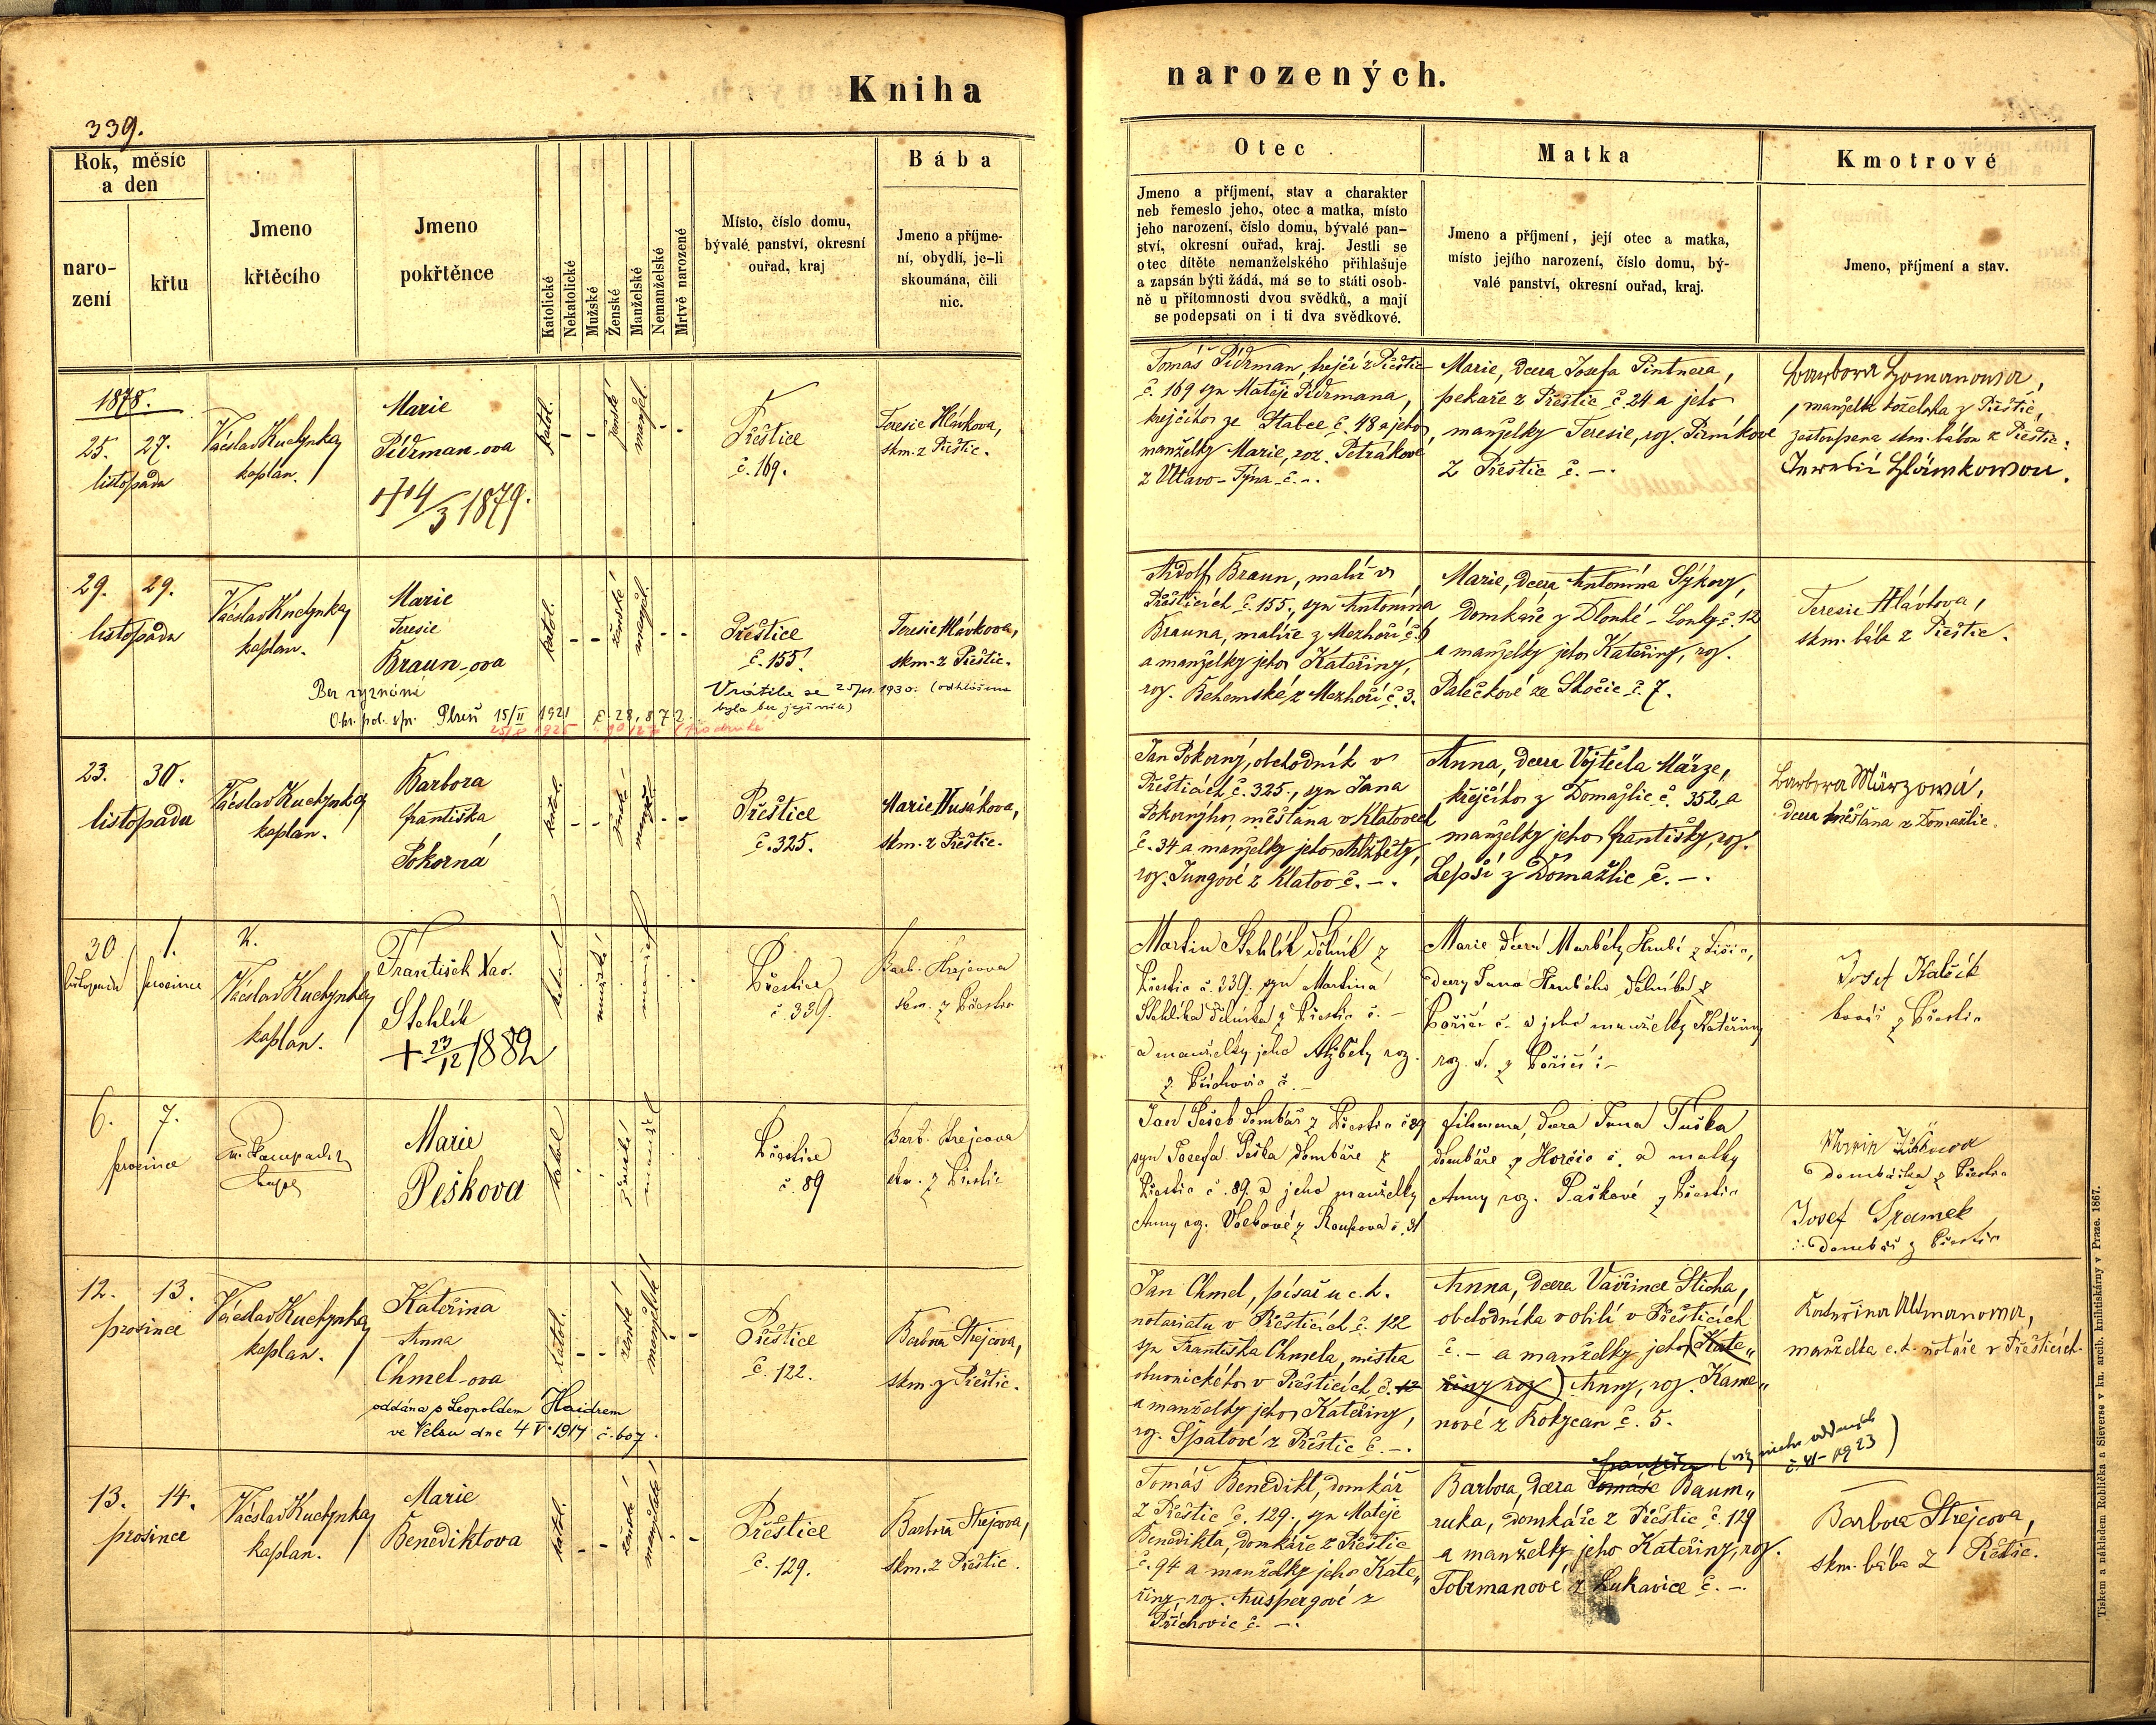 Kniha
narozených.
339.
Rok, měsíc
a den
naro-
zení
křtu
Jmeno
křtěcího
Jmeno
pokřtěnce
Katolické
Nekatolické
Mužské
Ženské
Manželské
Nemanželské
Mrtvě narozené
Místo, číslo domu,
bývalé panství, okresní
ouřad, kraj
Bába
Jmeno a příjme-
ní, obydlí, je-li
skoumána, čili
nic.
Otec
Jmeno a příjmení, stav a charakter
neb řemeslo jeho, otec a matka, místo
jeho narození, číslo domu, bývalé pan-
ství, okresní ouřad, kraj. Jestli se
otec dítěte nemanželského přihlašuje
a zapsán býti žádá, má se to státi osob-
ně u přítomnosti dvou svědků, a mají
se podepsati on i ti dva svědkové.
Matka
Jmeno a příjmení, její otec a matka,
místo jejího narození, číslo domu, bý-
valé panství, okresní ouřad, kraj.
Kmotrové
Jmeno, příjmení a stav.
1878.
25. 27.
listopadu
Václav Kuchynka
kaplan.
Marie
Pidrman-ova
+ 4/3 1879.
katol.
-
-
ženské
manžel.
-
-
Přeštice
č. 169.
Teresie Hlávkova,
skm. z Přeštic.
Tomáš Pidrman, krejčí z Přeštic
č. 169 syn Matěje Pidrmana,
krejčího ze Stabce č. 48 a jeho
manželky Marie, roz. Petrákové
z Vltavo-Týna č. -.
Marie, dcera Josefa Pintnera,
pekaře z Přeštic č. 24 a jeho
manželky Teresie, roz. Pirníkové
z Přeštic č. -.
Barbora Homanowa,
manželka koželuha z Přeštic,
zastoupena skm. bábou z Přeštic
Hlawkowou.
29. 29.
listopadu
Václav Kuchynka
kaplan.
Marie
Teresie
Braun-ova
Bez vyznání
Okr. pol. spr. Plzeň 15/II 1921 č. 28.872.
Vrátila se 1930. (odhlášena
byla bez její viny)
katol.
-
-
ženské
manžel.
-
-
Přeštice
č. 155.
Teresie Hlávkova,
skm. z Přeštic.
Adolf Braun, malíř v
Přešticích č. 155., syn Antonína
Brauna, malíře z Mezhoří č. 9
a manželky jeho Kateřiny,
roz. Behemské z Mezhoří č. 3.
Marie, dcera Antonína Sýkory,
domkáře z Dlouhé-Louky č. 12
a manželky jeho Kateřiny, roz.
Palečkové ze Skočic č. 7.
Teresie Hlávkova,
skm. bába z Přeštic.
23. 30.
listopadu
Václav Kuchynka
kaplan.
Barbora
Františka
Pokorná
katol.
-
-
ženské
manžel.
-
-
Přeštice
č. 325.
Marie Husákova,
skm. z Přeštic.
Jan Pokorný, obchodník v
Přešticích č. 325., syn Jana
Pokorného, měšťana v Klatovech
č. 34 a manželky jeho Alžběty,
roz. Jungové z Klatov č. -.
Anna, dcera Vojtěcha Märze,
krejčího z Domažlic č. 352, a
manželky jeho Františky, roz.
Lepší z Domažlic č. -.
Barbora Märzowá,
dcera měšťana z Domažlic.
30 1.
listopadu prosince
Václav Kuchynka
kaplan.
František Xav.
Stehlík
+ 23/12 1882
katol
mužské
manžel
Přeštice
č. 339.
Barb. Strejcova
skm. z Přeštic
Martin Stehlík dělník z
Přeštic č. 339. syn Martina
Stehlíka dělníka z Přeštic č. -
a manželky jeho Alžběty roz.
z Příchovic č. -
Marie dcera Markéty Hrubé z
dcery Jana Hrubého dělníka z
Poříčí č. - a jeho manželky Kateřiny
roz. z Poříčí č. -
Josef Kalčík
kovář z Přeštic
6. 7.
prosince
Marie
Peškova
katol
ženské
manžel
Přeštice
č. 89
Barb. Strejcova
skm. z Přeštic
Jan Pešek domkář z Přeštic č 89
syn Josefa Peška domkáře z
Přeštic č. 89. a jeho manželky
Anny roz. z Roupova č. 31
Filomena, dcera Jana Tuška
domkáře z Horšic č. a matky
Anny roz. Paškové z Přeštic
Marie
domkářka z Přeštic
Josef Šrámek
domkář z Přeštic
12. 13.
prosince
Václav Kuchynka
kaplan.
Kateřina
Anna
Chmel-ova
oddána s Leopoldem Haidrem
ve Velsu dne 4 V. 1917 č. 607.
katol.
-
-
ženské
manželské
-
-
Přeštice
č. 122.
Barbora Strejcova,
skm. z Přeštic.
Jan Chmel, písař u c. k.
notariatu v Přešticích č. 122
syn Františka Chmela, mistra
v Přešticích č. 12
a manželky jeho Kateřiny,
roz. Špatové z Přeštic č. -.
Anna, dcera Vavřince Sticha,
obchodníka v obilí v Přešticích
č. - a manželky jeho (Kate„
řiny roz) Anny, roz. Kame„
nové z Rokycan č. 5.
Kateřina Altmanowa,
manželka c. k. notáře v Přešticích.
13. 14.
prosince
Václav Kuchynka
kaplan.
Marie
Benediktova
katol.
-
-
ženské
manželské
-
-
Přeštice
č. 129.
Barbora Strejcova,
skm. z Přeštic.
Tomáš Benedikt, domkář
z Přeštic č. 129., syn Matěje
Benedikta, domkáře z Přeštic
č. 94 a manželky jeho Kate„
řiny, roz. Auspergové z
Příchovic č. -.
(viz matr. oddaných
č. 41-1923)
Barbora, dcera Tomáše Baum„
ruka, domkáře z Přeštic č. 129
a manželky jeho Kateřiny, roz.
Tobrmanové z Lukavice č. -.
Barbora Strejcova,
skm. bába z Přeštic.
Tiskem a nákladem Rohlíčka a Sieverse v kn. arcib. knihtiskárny v Praze. 1867.